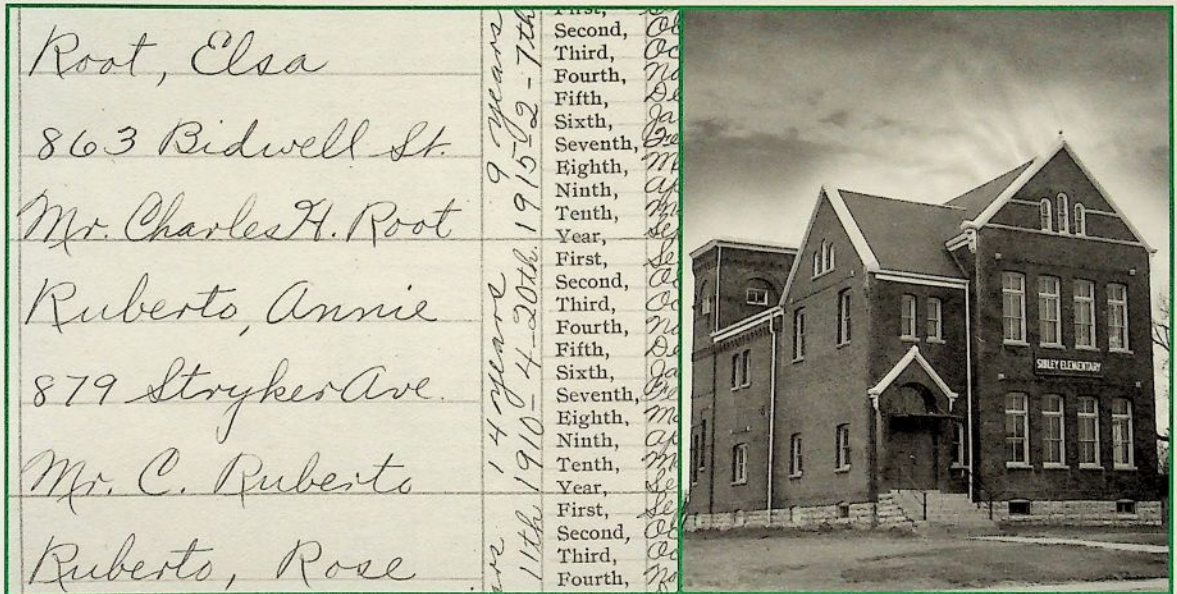 Root, Elsa
863 Bidwell St.
Mr. Charles H. Root
Ruberto, Annie
879 Stryker Ave.
Mr. C. Ruberto
Ruberto, Rose
9 years
1915-2-7th
14 years
1910-4-20th
11th
First,
Second,
Third,
Fourth,
Fifth,
Sixth,
Seventh,
Eighth,
Ninth,
Tenth,
Year,
First,
Second,
Third,
Fourth,
Fifth,
Sixth,
Seventh,
Eighth,
Ninth,
Tenth,
Year,
First,
Second,
Third,
Fourth,
SIBLEY ELEMENTARY